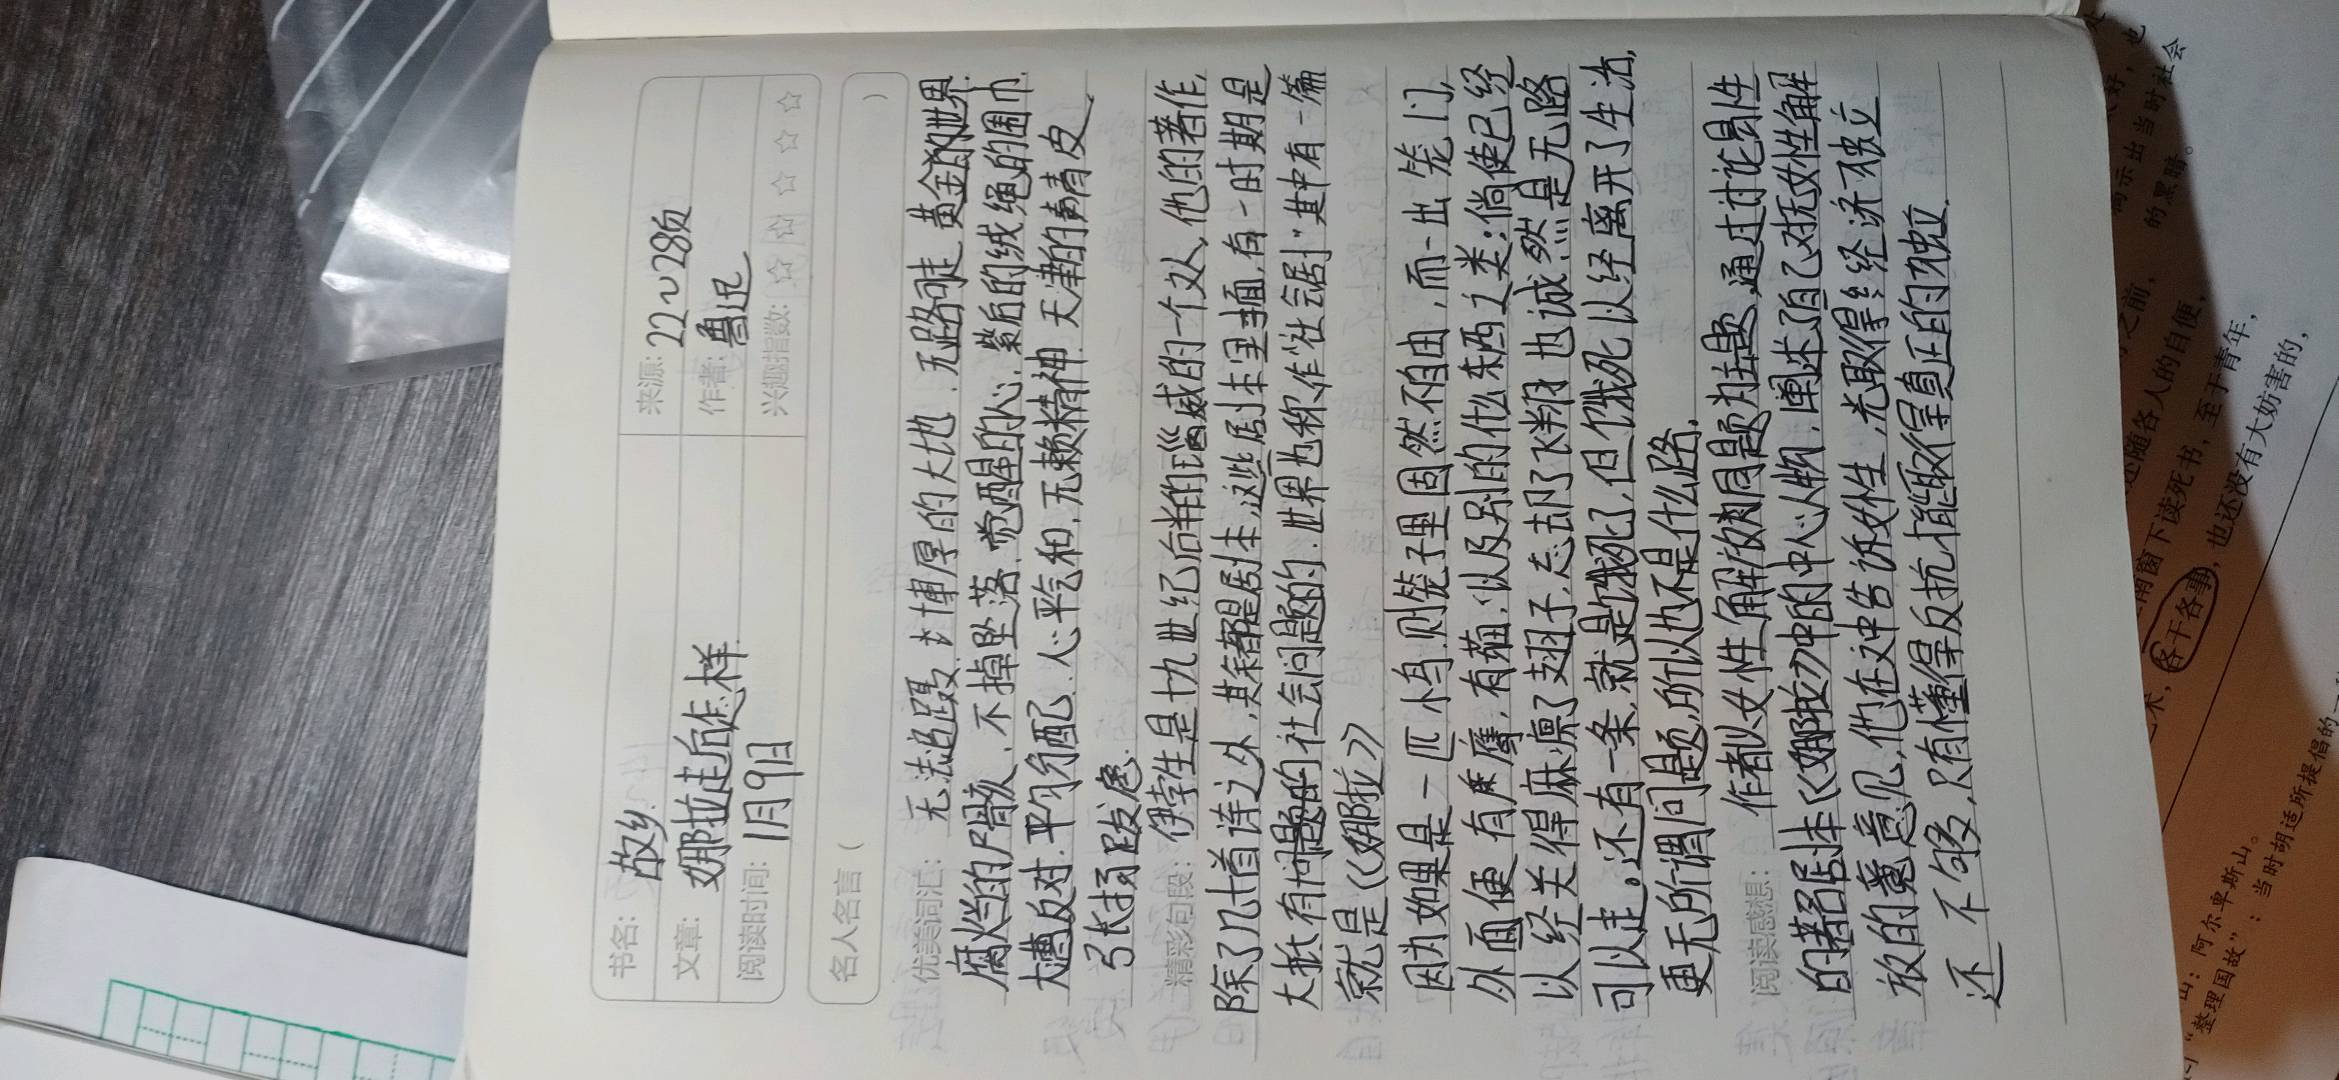 书名: 故乡 来源: 22~28页
文章: 娜拉走后怎样 作者: 鲁迅
阅读时间: 1月9日 兴趣指数: ☆ ☆ ☆ ☆ ☆
名人名言 ( )
优美词汇: 无法追蹑. 博厚的大地. 无路可走 黄金的世界.
腐烂的尸骸. 不掉坠落. 觉醒的心. 紫后的绒绳的围巾.
大遭反对. 平匀分配. 心平气和. 无赖精神. 天津的青皮
弓长扬跋扈.
精彩句段: 伊孛生是十九世纪后半的瑙威的一个文人, 他的著作,
除了几十首诗之外, 其余都是剧本, 这些剧本里面, 有一时期是
大抵有问题的社会问题的. 世界也称作"社会剧" 其中有一篇
就是《娜拉》
因为如果是一匹小鸟. 则笼子里固然不自由, 而一出笼门,
外面便有鹰, 有猫, 以及别的什么东西之类; 倘使已经
以经关得麻痹了翅子, 忘却了飞翔 也诚然是无路
可以走。还有一条, 就是饿死了, 但饿死以经离开了生活,
更无所谓问题, 所以也不是什么路.
阅读感想: 作者以女性解放问题为主题, 通过讨论易性
的著名剧本《娜拉》中的中心人物, 阐述了自己对抚女性解
放的意意见, 他在文中告诉女性, 光取得经济独立
还不够, 只有懂得反抗才能取得真正的独立.
高示出当时社会
的黑暗。
还随各人的自便,
南窗下读死书, 至于青年,
各干各事, 也还没有大妨害的,
山: 阿尔卑斯山。
"整理国故": 当时胡适所提倡的一